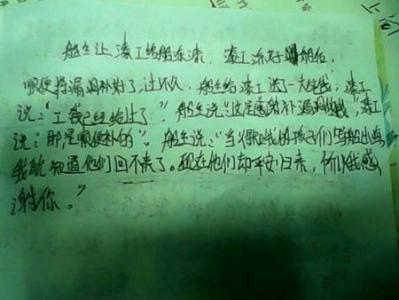 船主让漆工给船东漆,漆工涂好船后,
顺便将漏洞补好了,过不久,船主给漆工送了一大笔钱,漆工
说:"工钱已经给过了。"船主说:"这是感谢补漏洞的钱,"漆工
说:"那是顺便补的"。船主说:"当得知我的孩子们驾船出海
我就知道他们回不来了。现在他们却平安归来,所以我感
谢你。"